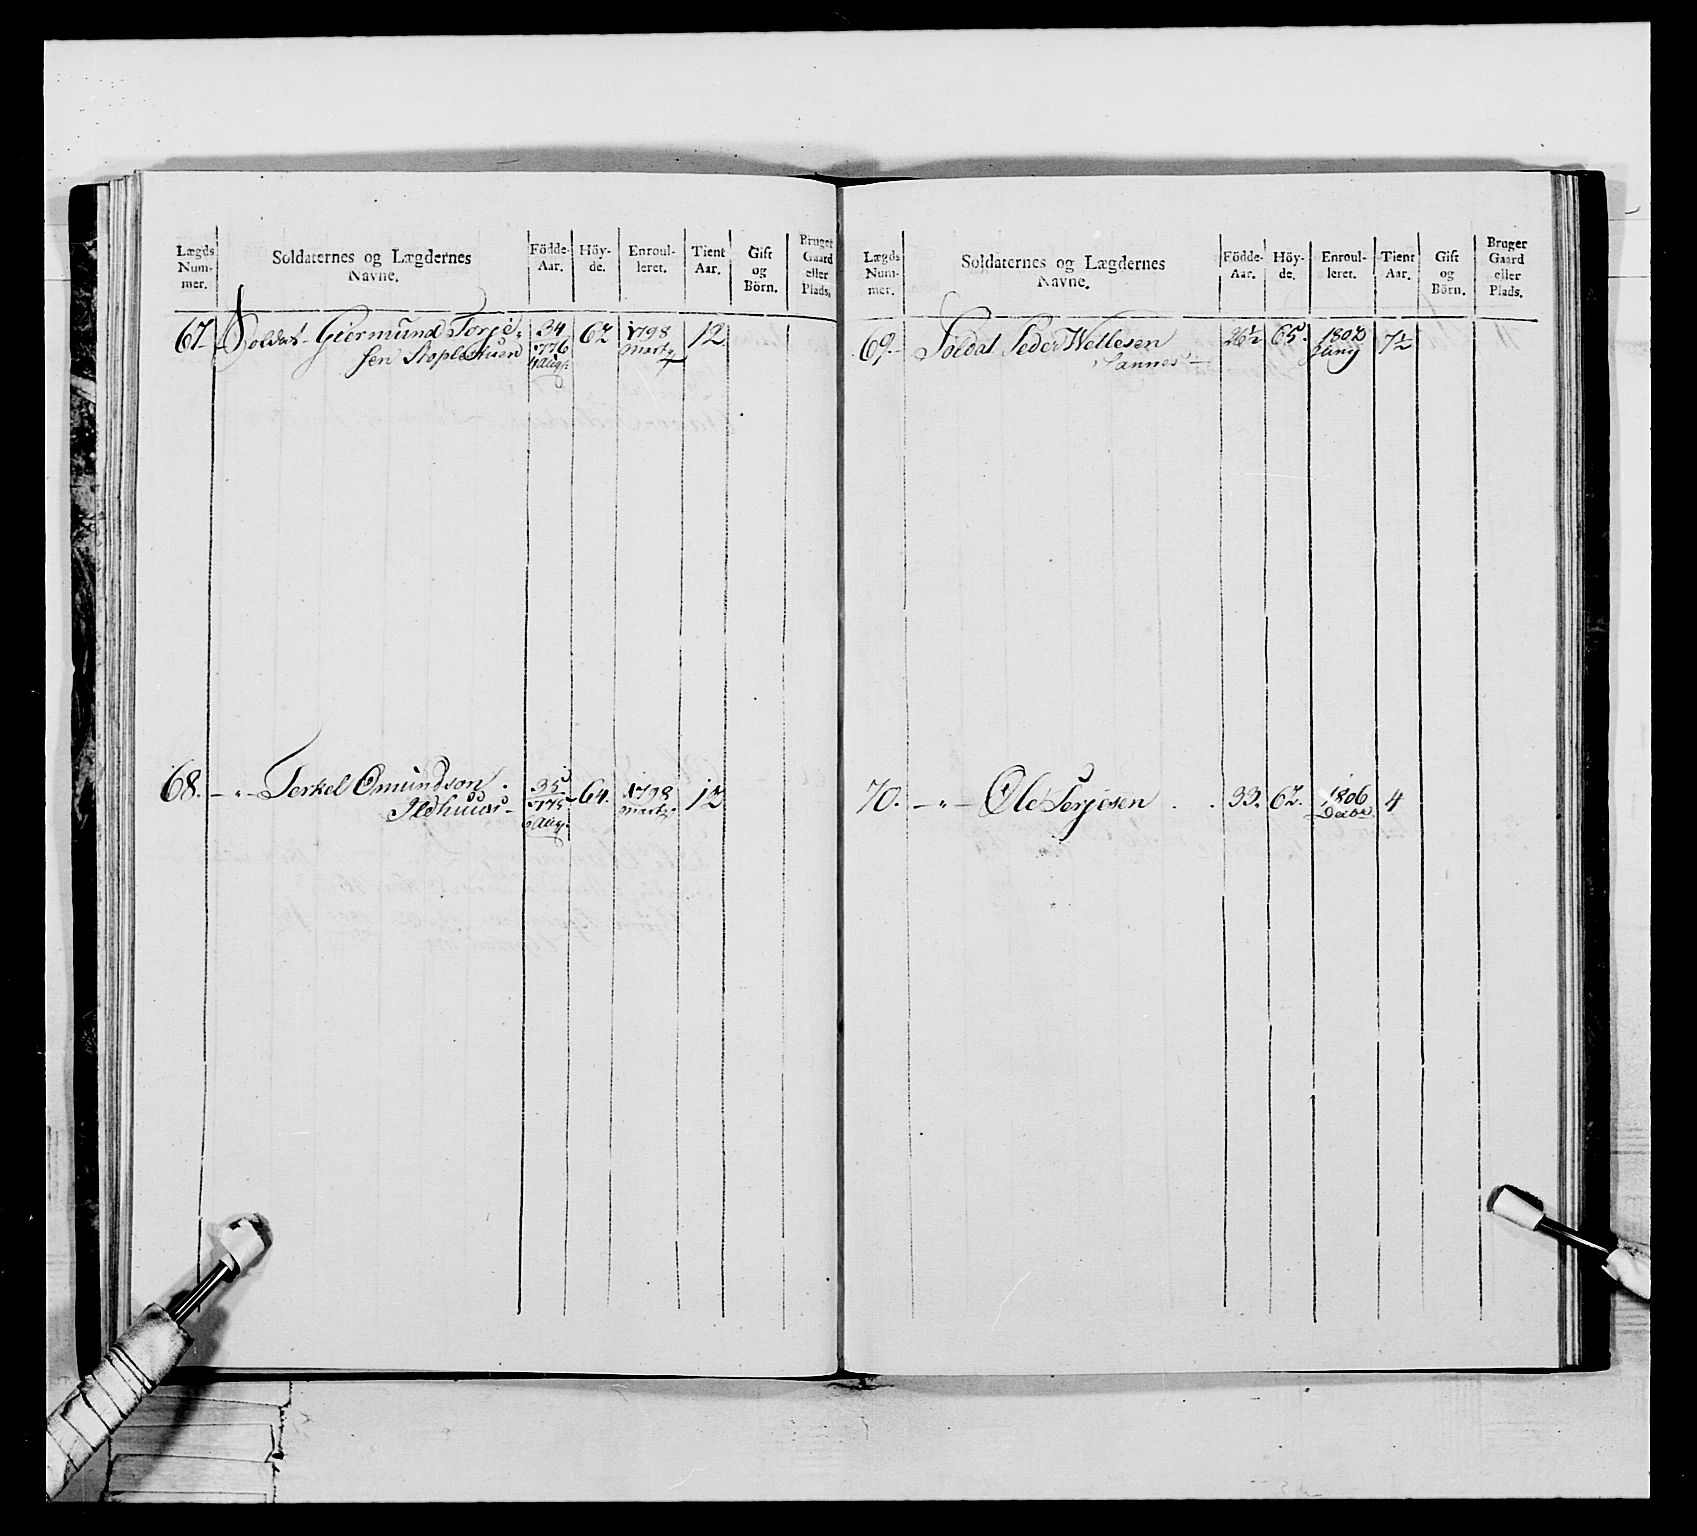 Lægds Num- mer. Soldaternes og Lægdernes Navne. Födde- Aar. Höy- de. Enroul- leret. Tient Aar. Gift og Börn. Bruger Gaard eller Plads.
67. Soldat Giermund Torje- 34 62 1798 12
sen 1776 Martz
Aug:
68. - " - Terkel Omundson 35 64. 1798 12
Ildhuus 1775 Martz
Aug:
Lægds Num- mer. Soldaternes og Lægdernes Navne. Födde- Aar. Höy- de. Enroul- leret. Tient Aar. Gift og Börn. Bruger Gaard eller Plads.
69. Soldat Peder Wellesen 26½ 65. 1802 7½
Sannes Juny
70. - " - Ole Terjesen 33. 62. 1806 4
Decbr